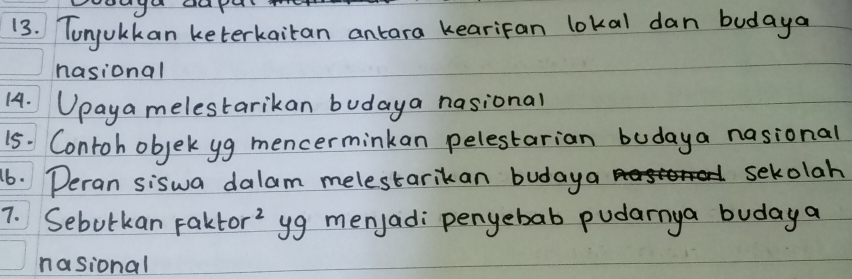 Budaya dapat
13. Tunjukkan keterkaitan antara kearifan lokal dan budaya
nasional
14. Upaya melestarikan budaya nasional
15. Contoh objek yg mencerminkan pelestarian budaya nasional
16. Peran siswa dalam melestarikan budaya nasional sekolah
7. Sebutkan faktor² yg menjadi penyebab pudarnya budaya
nasional